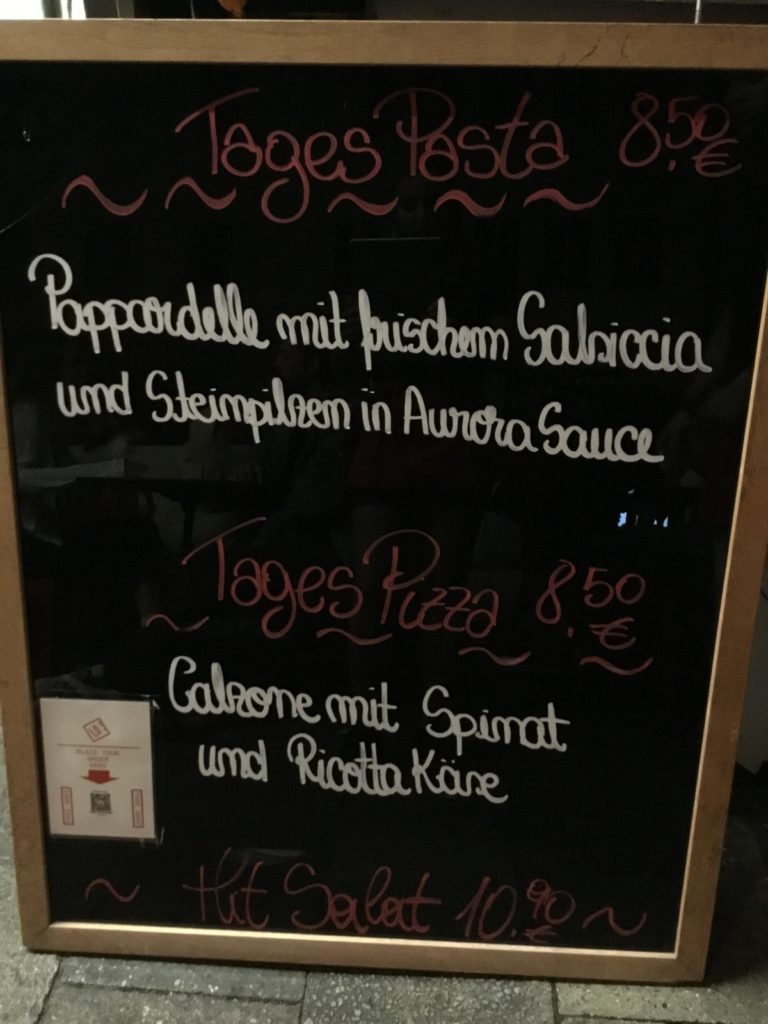 Tages Pasta 8.50 €
Pappardelle mit frischem Salsiccia
und Steinpilzen in Aurora Sauce
Tages Pizza 8.50 €
Calzone mit Spinat
und Ricotta Käse
PLACE YOUR
ORDER
HERE
Hit Salat 10.90 €